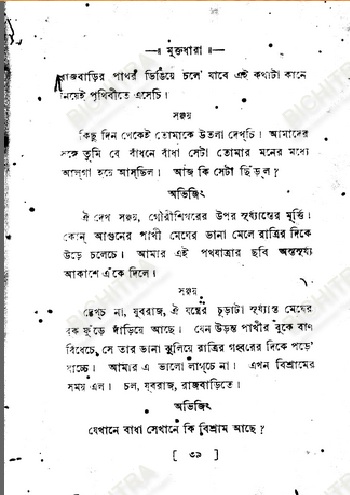 ॥ মুক্তধারা ॥
রাজবাড়ির পাথর ডিঙিয়ে চলে' যাবে এই কথাটা কানে
নিয়েই পৃথিবীতে এসেচি।
সঞ্জয়
কিছু দিন থেকেই তোমাকে উতলা দেখ্‌চি। আমাদের
সঙ্গে তুমি যে বাঁধনে বাঁধা সেটা তোমার মনের মধ্যে
আল্‌গা হয়ে আস্‌ছিল। আজ কি সেটা ছিঁড়্‌ল?
অভিজিৎ
ঐ দেখ সঞ্জয়, গৌরীশিখরের উপর সূর্য্যাস্তের মূর্ত্তি।
কোন্ আগুনের পাখী মেঘের ডানা মেলে রাত্রির দিকে
উড়ে চলেচে। আমার এই পথযাত্রার ছবি অস্তসূর্য্য
আকাশে এঁকে দিলে।
সঞ্জয়
দেখ্‌চ না, যুবরাজ, ঐ যন্ত্রের চূড়াটা সূর্য্যাস্ত মেঘের
বুক ফুঁড়ে দাঁড়িয়ে আছে। যেন উড়ন্ত পাখীর বুকে বাণ
বিঁধেচে, সে তার ডানা ঝুলিয়ে রাত্রির গহ্বরের দিকে পড়ে'
যাচ্চে। আমার এ ভালো লাগ্‌চে না। এখন বিশ্রামের
সময় এল। চল, যুবরাজ, রাজবাড়িতে।
অভিজিৎ
যেখানে বাধা সেখানে কি বিশ্রাম আছে?
[ ৩৯ ]